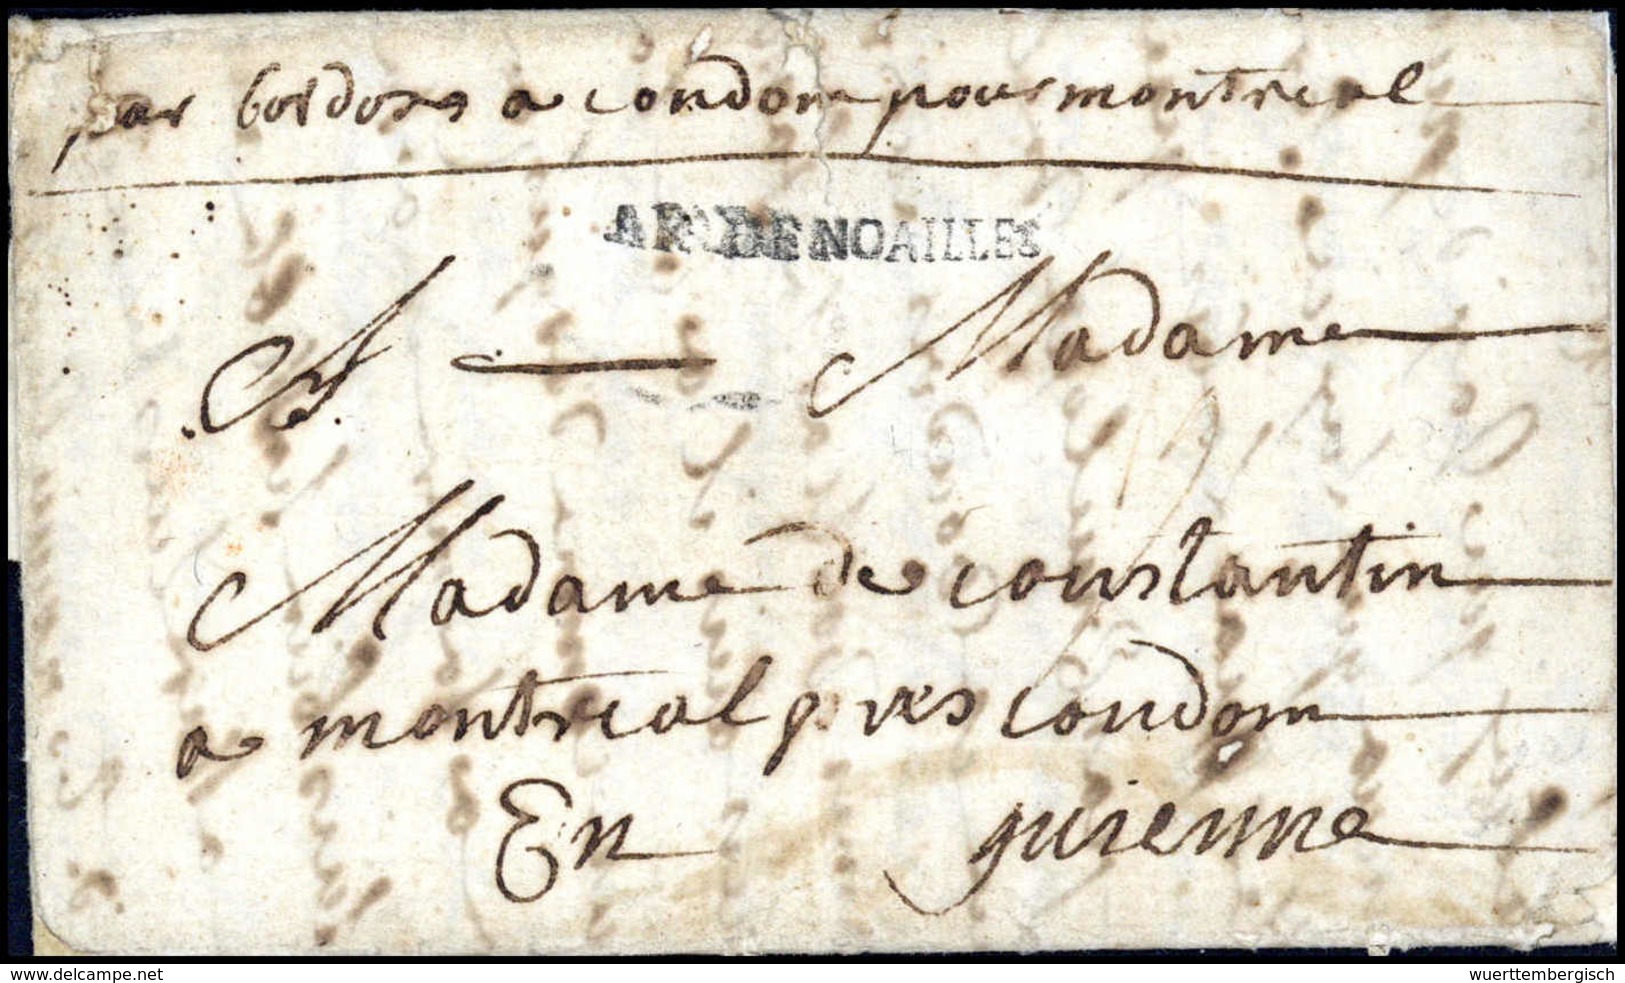 par bordoxs a condom pour montreal
AR. DE NOAILLES
A Madame
Madame de constantin
a montreal pres condom
En guienne
www.delcampe.net
wuerttembergisch